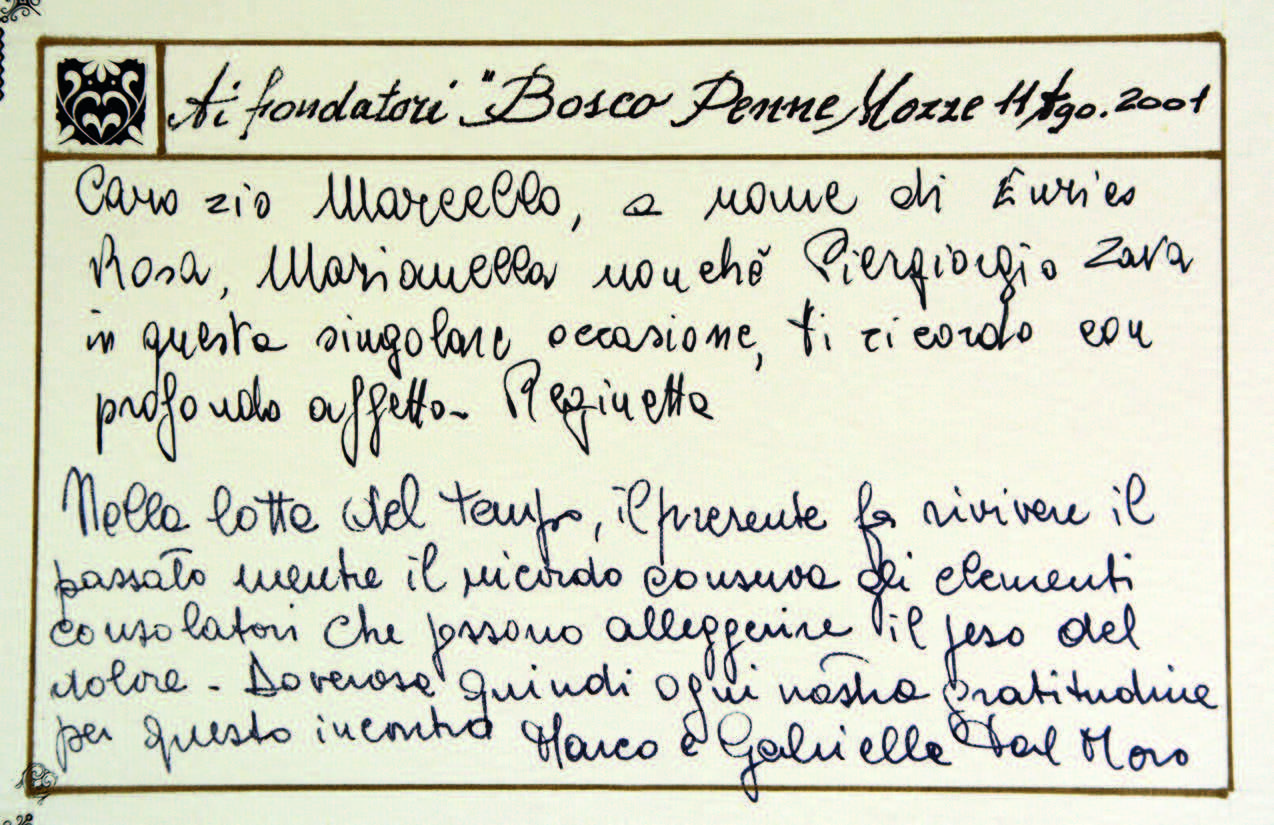 Ai fondatori "Bosco Penne Mozze 11 Ago. 2001
Caro zio Marcello, a nome di Enrico
Rosa, Marianella nonchè Piergiorgio Zava
in questa singolare occasione, ti ricordo con
profondo affetto - Reginetta
Nella lotta del tempo, il presente fa rivivere il
passato mentre il ricordo conserva gli elementi
consolatori che possono alleggerire il peso del
dolore - Doverosa quindi ogni nostra gratitudine
per questo incontro Marco e Gabriella Dal Moro